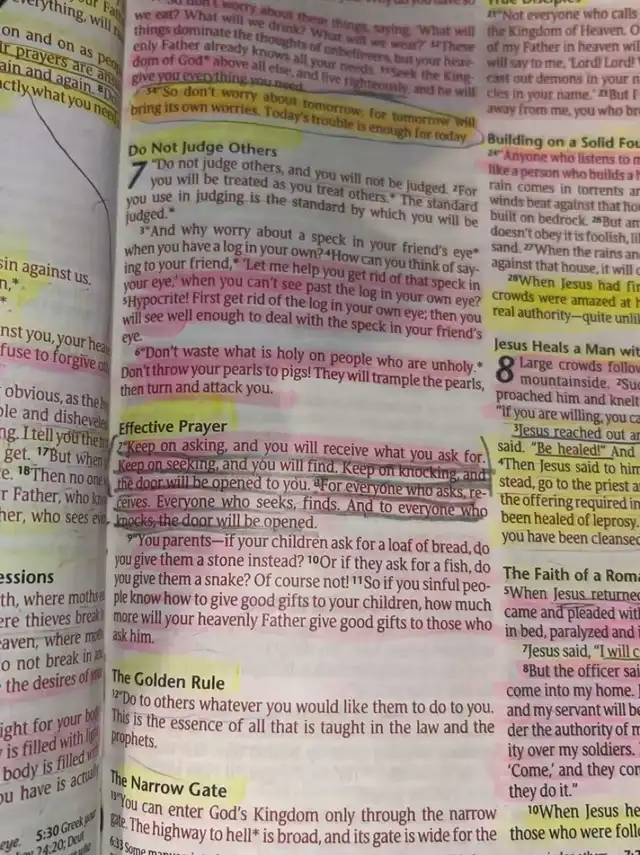 everything, will
on and on as peo
r prayers are an
ain and again.
ctly what you need
sin against us.
nst you, your heav
fuse to forgive
obvious, as the
ple and disheveled
ng. I tell you the
get. 17But when
e. 18Then no one
r Father, who
her, who sees
essions
th, where moths
ere thieves break
eaven, where
o not break in
the desires of
ight for your
y is filled with
body is filled
ou have is actually
eye. 5:30 Greek
24:20; Deut
So don't worry about these things, saying, 'What will
we eat? What will we drink? What will we wear?' 32These
things dominate the thoughts of unbelievers, but your heav-
enly Father already knows all your needs. 33Seek the King-
dom of God* above all else, and live righteously, and he will
give you everything you need.
34"So don't worry about tomorrow, for tomorrow will
bring its own worries. Today's trouble is enough for today.
Do Not Judge Others
7 "Do not judge others, and you will not be judged. 2For
you will be treated as you treat others.* The standard
you use in judging is the standard by which you will be
judged.*
3"And why worry about a speck in your friend's eye*
when you have a log in your own? 4How can you think of say-
ing to your friend,* 'Let me help you get rid of that speck in
your eye,' when you can't see past the log in your own eye?
5Hypocrite! First get rid of the log in your own eye; then you
will see well enough to deal with the speck in your friend's
eye.
6"Don't waste what is holy on people who are unholy.*
Don't throw your pearls to pigs! They will trample the pearls,
then turn and attack you.
Effective Prayer
7"Keep on asking, and you will receive what you ask for.
Keep on seeking, and you will find. Keep on knocking, and
the door will be opened to you. 8For everyone who asks, re-
ceives. Everyone who seeks, finds. And to everyone who
knocks, the door will be opened.
9"You parents—if your children ask for a loaf of bread, do
you give them a stone instead? 10Or if they ask for a fish, do
you give them a snake? Of course not! 11So if you sinful peo-
ple know how to give good gifts to your children, how much
more will your heavenly Father give good gifts to those who
ask him.
The Golden Rule
12"Do to others whatever you would like them to do to you.
This is the essence of all that is taught in the law and the
prophets.
The Narrow Gate
13"You can enter God's Kingdom only through the narrow
gate. The highway to hell* is broad, and its gate is wide for the
6:33 Some
True Disciples
21"Not everyone who calls
the Kingdom of Heaven. O
of my Father in heaven w
will say to me, 'Lord! Lord!
cast out demons in your n
cles in your name.' 23But I
away from me, you who br
Building on a Solid Fou
24"Anyone who listens to m
like a person who builds a h
rain comes in torrents an
winds beat against that hou
built on bedrock. 26But an
doesn't obey it is foolish, li
sand. 27When the rains and
against that house, it will
28When Jesus had fin
crowds were amazed at h
real authority—quite unlik
Jesus Heals a Man wit
8 Large crowds follow
mountainside. 2Sud
proached him and knelt
"if you are willing, you ca
3Jesus reached out an
said. "Be healed!" And
4Then Jesus said to him
stead, go to the priest a
the offering required in
been healed of leprosy.
you have been cleansed
The Faith of a Roma
5When Jesus returned
came and pleaded with
in bed, paralyzed and i
7Jesus said, "I will c
8But the officer sai
come into my home.
and my servant will be
der the authority of m
ity over my soldiers.
'Come,' and they com
they do it."
10When Jesus he
those who were follo